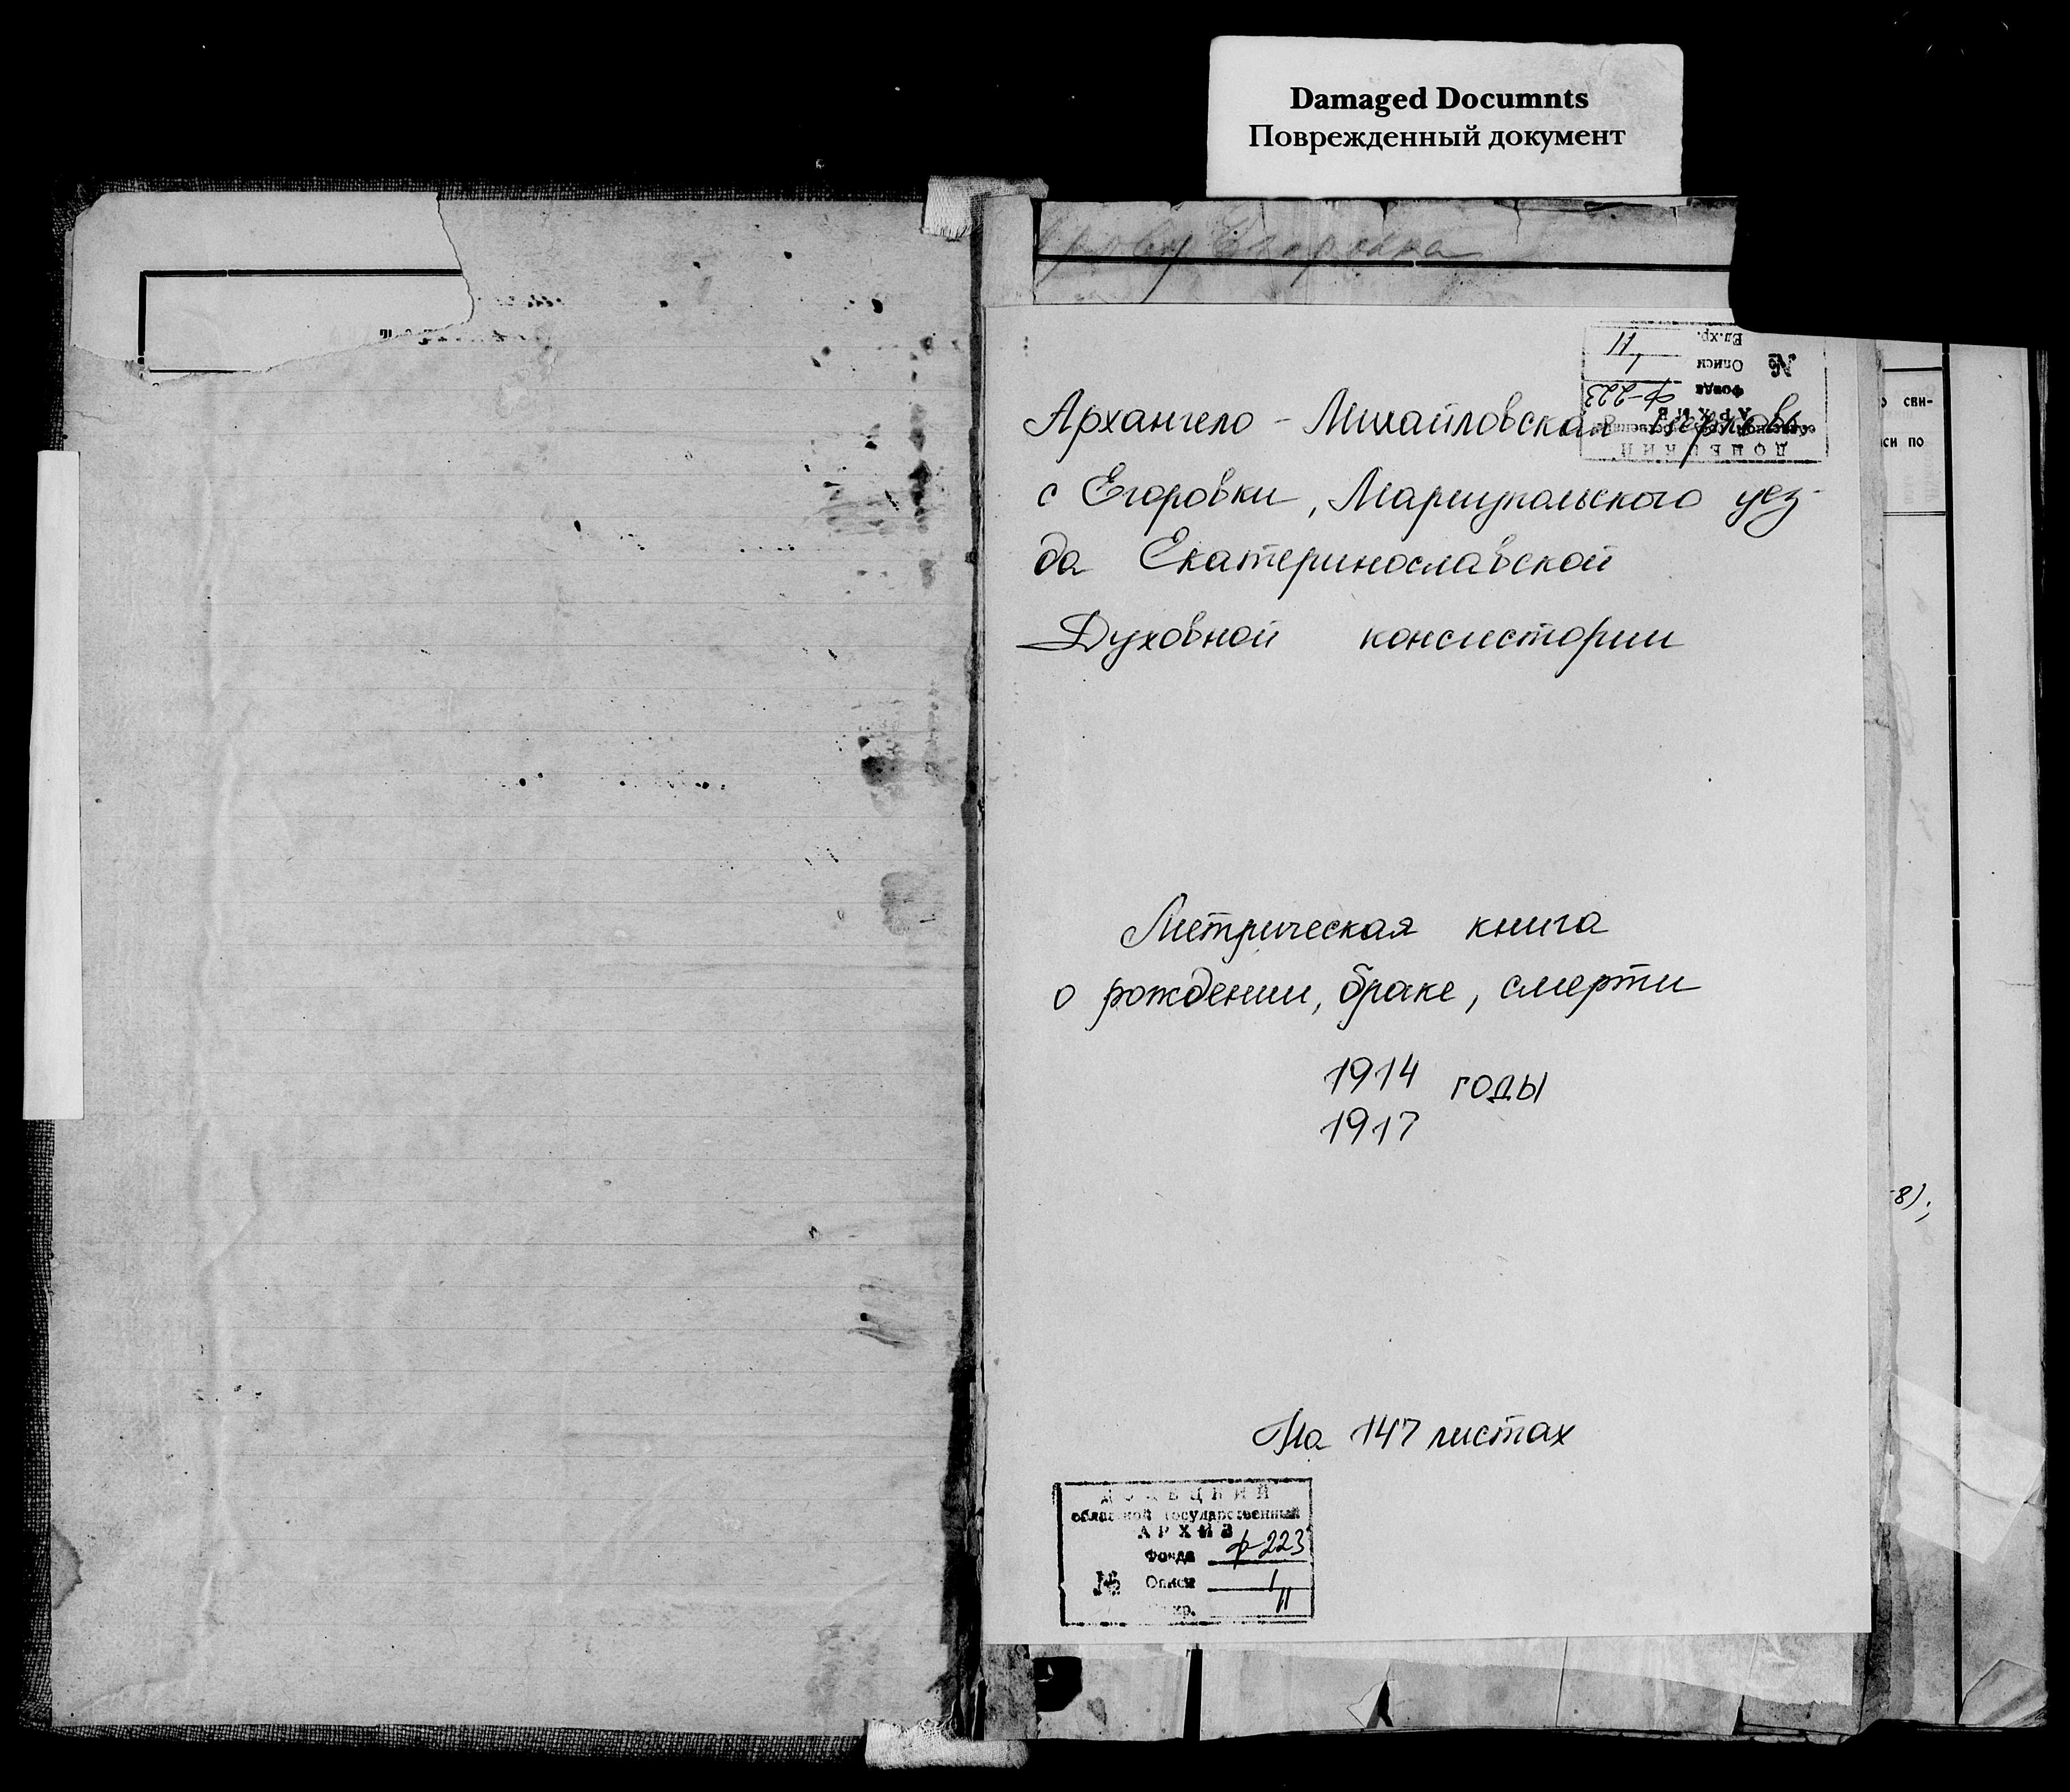 Damaged Documnts
Поврежденный документ
Егоровка
№
Ед.хр. 11
Описи 1
Фонда Ф-223
АРХИВ
областной государственный
ДОНЕЦКИЙ
Архангело-Михайловская церковь
с Егоровки, Мариупольского уез-
да Екатеринославской
Духовной консистории
Метрическая книга
о рождении, браке, смерти
1914 годы
1917
На 147 листах
ДОНЕЦКИЙ
областной государственный
АРХИВ
Фонда ф-223
№ Описи 1
хр. 11
сви-
си по
8);